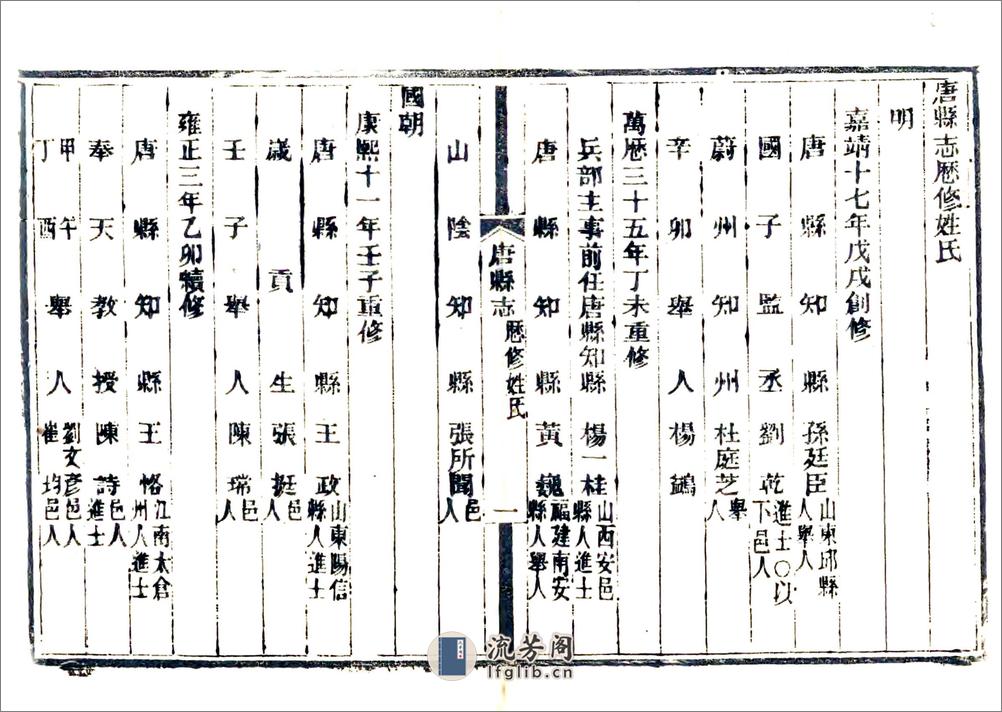 唐縣志歷修姓氏
明
嘉靖十七年戊戌創修
唐縣知縣孫廷臣山東邱縣人舉人
國子監丞劉乾進士○以下邑人
蔚州知州杜庭芝舉人
辛卯舉人楊鷁
萬歷三十五年丁未重修
兵部主事前任唐縣知縣楊一桂山西安邑縣人進士
唐縣知縣黃巍福建南安縣人舉人
山陰知縣張所聞邑人
唐縣志 歷修姓氏 一
國朝
康熙十一年壬子重修
唐縣知縣王政山東陽信縣人進士
歲貢生張挺邑人
壬子舉人陳瑞邑人
雍正三年乙卯續修
唐縣知縣王恪江南太倉州人進士
奉天教授陳詩邑人進士
甲午舉人劉文彥邑人
丁酉舉人崔均邑人
流芳阁
lfglib.cn